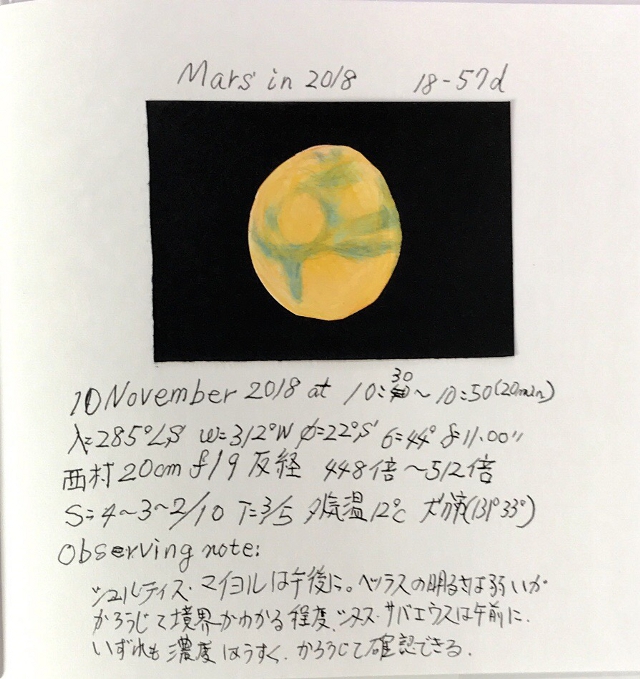 Mars in 2018 18-57d
10 November 2018 at 10:30~10:50(20min)
λ=285°LS ω=312°W φ=22°S 6=44° δ11.00"
西村20cm f/9 反経 448倍~512倍
S=4~3~2/10 T=3/5 気温12℃ (131°33°)
Observing note:
シュルティス・マイヨルは午後に。ヘラスの明るさは弱いが
かろうじて境界がわかる程度、シヌス・サバエウスは午前に.
いずれも濃度はうすく、かろうじて確認できる.